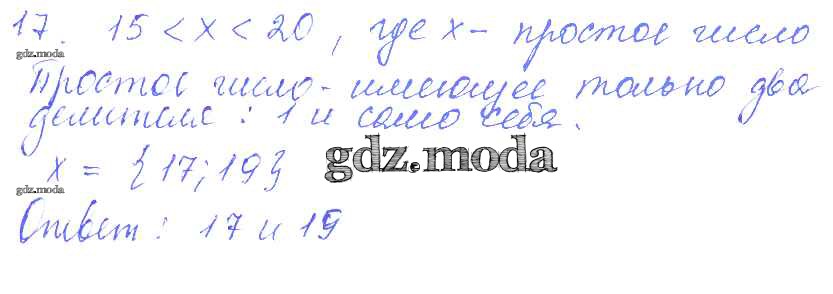 17. 15 < x < 20, где x - простое число
gdz.moda
Простое число - имеющее только два
делителя: 1 и само себя.
x = {17; 19}
gdz.moda
gdz.moda
Ответ: 17 и 19